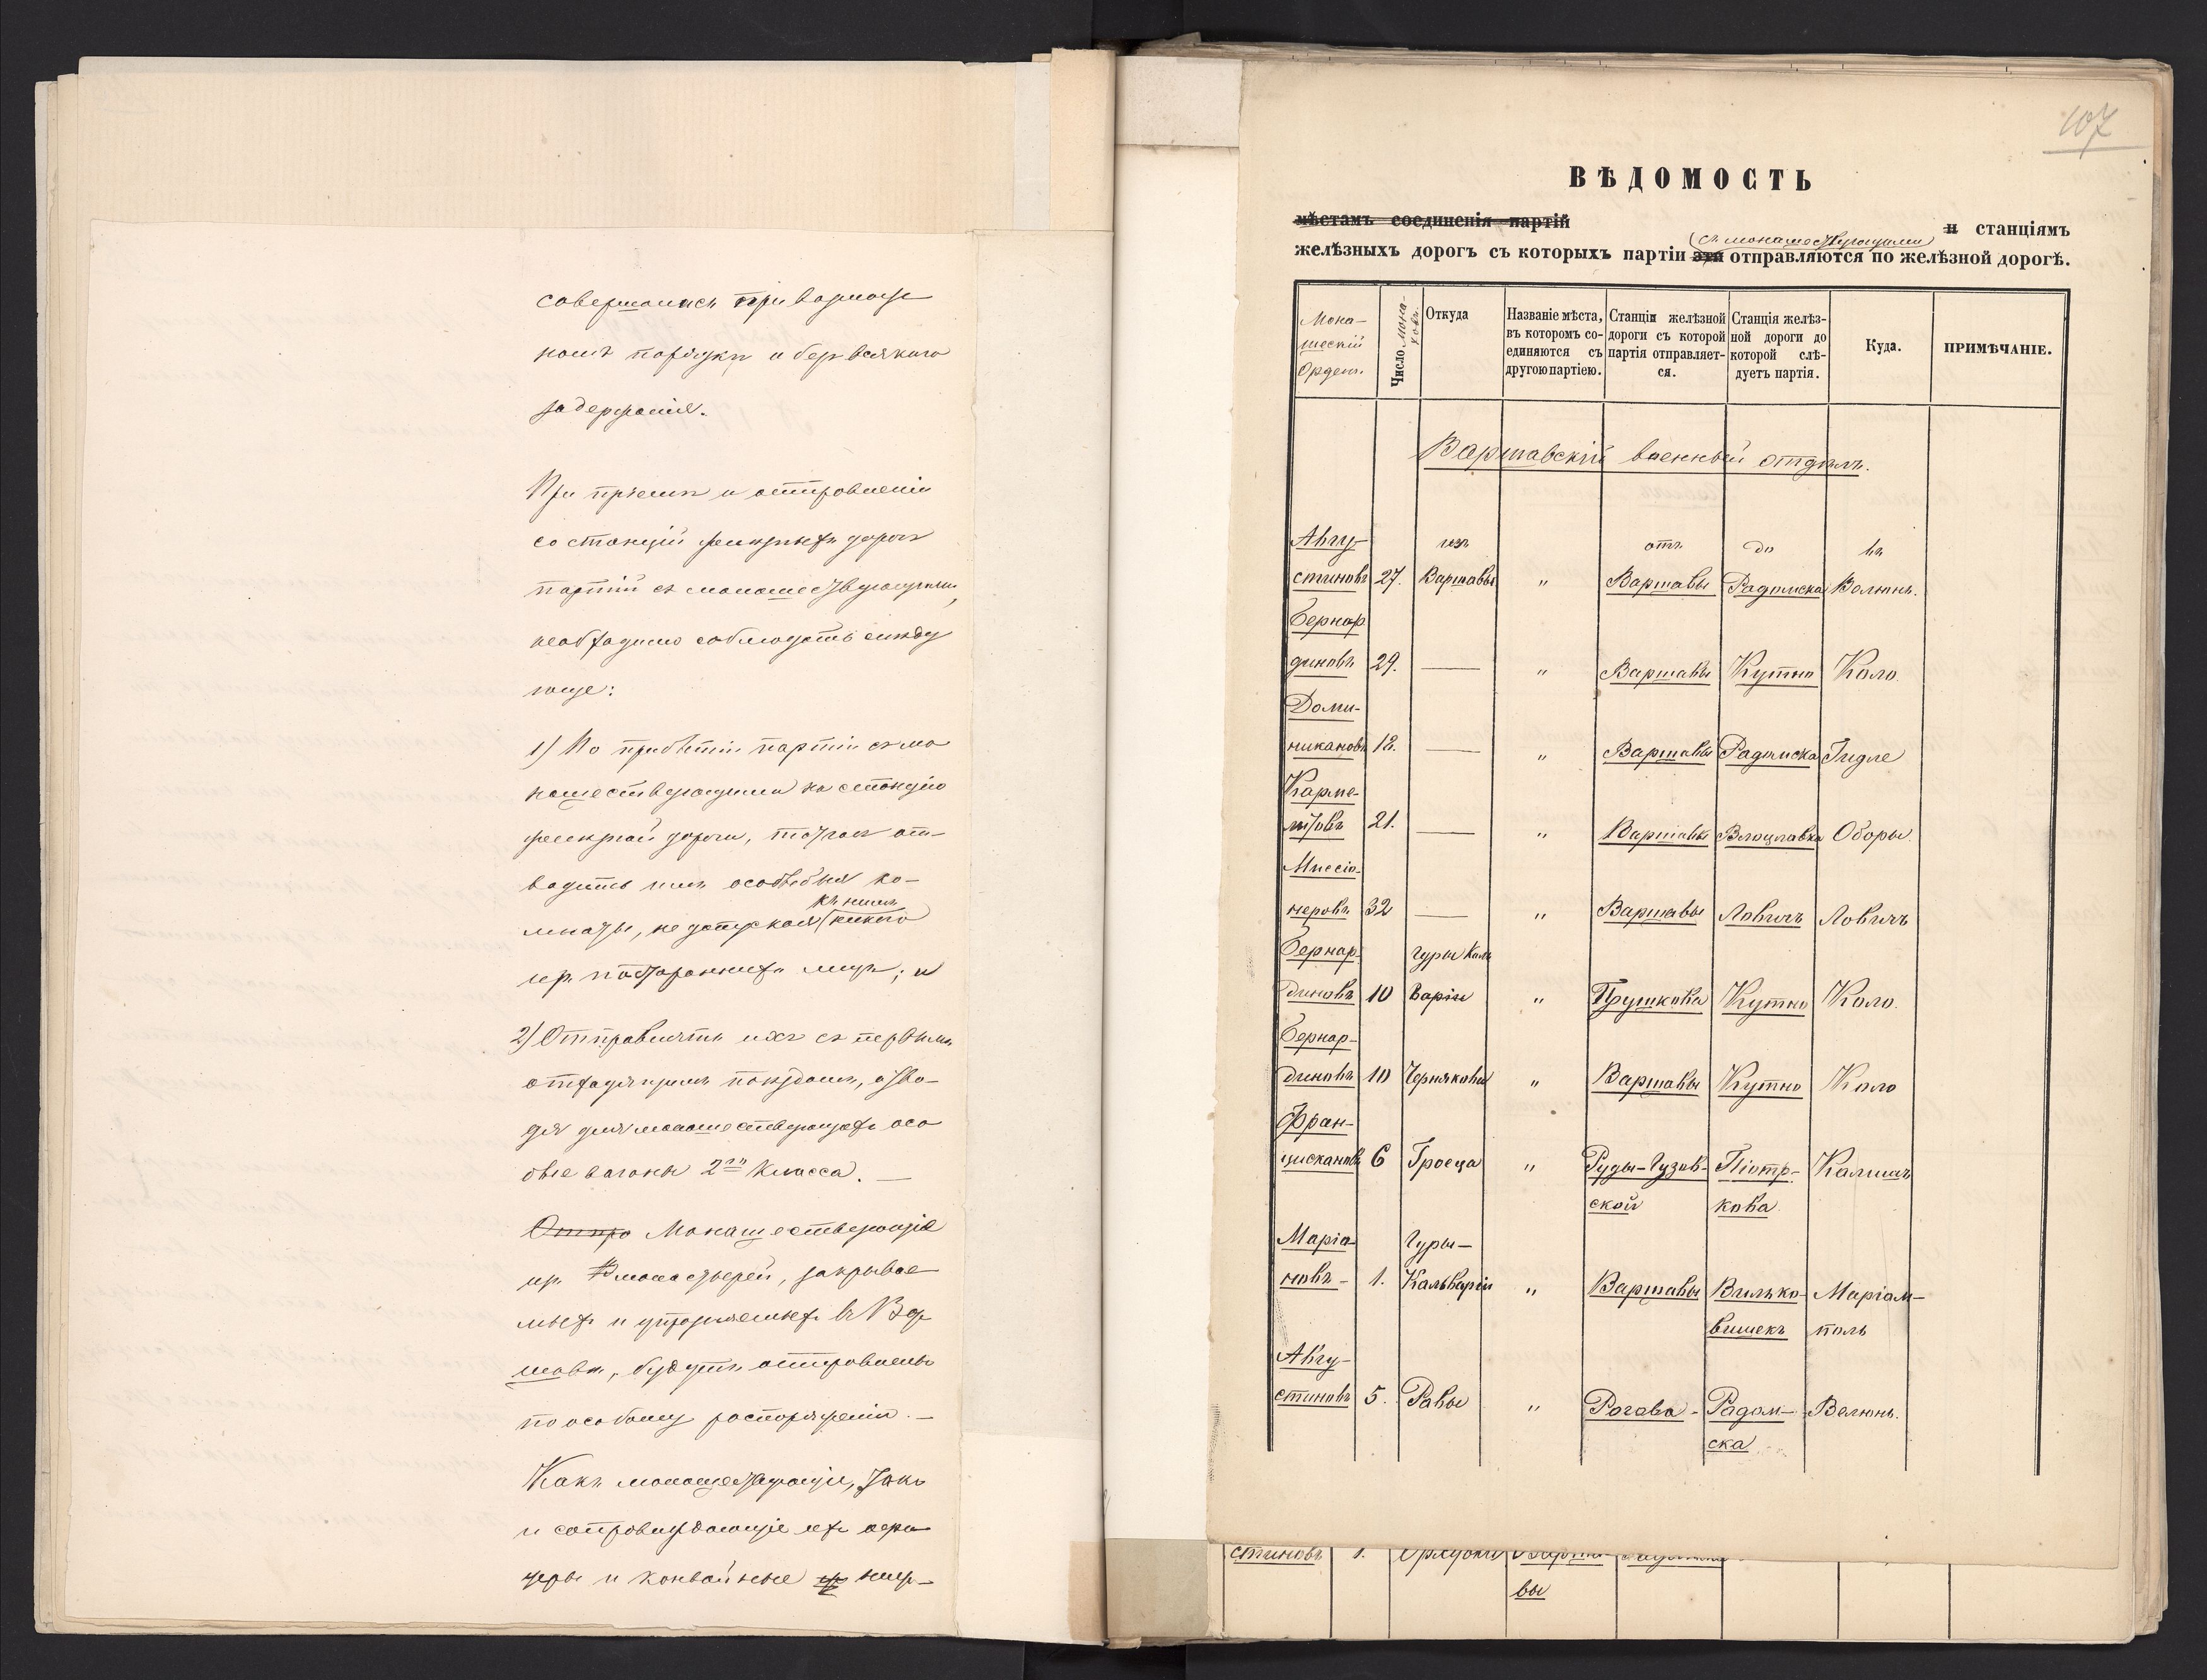 совершались при варшавс
комъ порядкѣ и безъ всякаго
задержанія.
При пріемѣ и отправленіи
со станцій желѣзныхъ дорогъ
партій съ монашествующими,
необходимо соблюдать слѣду
ющее:
1) По прибытіи партіи съ мо
нашествующими на станцію
желѣзной дороги, тотчасъ от-
водить имъ особыя ко-
къ нимъ
мнаты, не допуская никого
изъ постороннихъ лицъ; и
2) Отправлять ихъ съ первымъ
отходящимъ поѣздомъ, отво-
дя для монашествующихъ осо
бые вагоны 2го класса. —
Отпра Монашествующіе
изъ монастырей, закрывае
мыхъ и упраздняемыхъ въ Вар
шавѣ, будутъ отправлены
по особому распоряженію. —
Какъ монашествующіе, такъ
и сопровождающіе ихъ офи
церы и конвойные
107
ВѢДОМОСТЬ
мѣстамъ соединенія партій
и станціямъ
съ монашествующими
желѣзныхъ дорогъ съ которыхъ партіи эти отправляются по желѣзной дорогѣ.
Мона-
шескій
Орденъ.
Число мона-
ховъ.
Откуда
Названіе мѣста,
въ которомъ со-
единяются съ
другою партіею.
Станціи желѣзной
дороги съ которой
партія отправляет-
ся.
Станція желѣз-
ной дороги до
которой слѣ-
дуетъ партія.
Куда.
ПРИМѢЧАНІЕ.
Варшавскій военный отдѣлъ.
Авгу- изъ отъ до въ
стиновъ 27. Варшавы " Варшавы Радомска Велюнь.
Бернар
диновъ 29. — " Варшавы Кутно Коло.
Доми-
никановъ 12. — " Варшавы Радомска Гидле
Карме-
литовъ 21. — " Варшавы Влоцлавка Оборы.
Миссіо-
неровъ 32 — " Варшавы Ловичъ Ловичъ
Бернар- Гуры Каль
диновъ 10 варіи " Прушкова Кутно Коло.
Бернар-
диновъ 10 Чернякова " Варшавы Кутно Коло
Фран-
цискановъ 6 Гроеца " Руды-Гузов- Піотр- Калишъ
ской кова
Маріа- Гуры-
новъ - 1. Кальваріи " Варшавы Вилько- Маріам-
вишекъ поль
Авгу-
стиновъ 5. Равы " Рогова - Радом- Велюнь.
ска
стиновъ 1.
вы